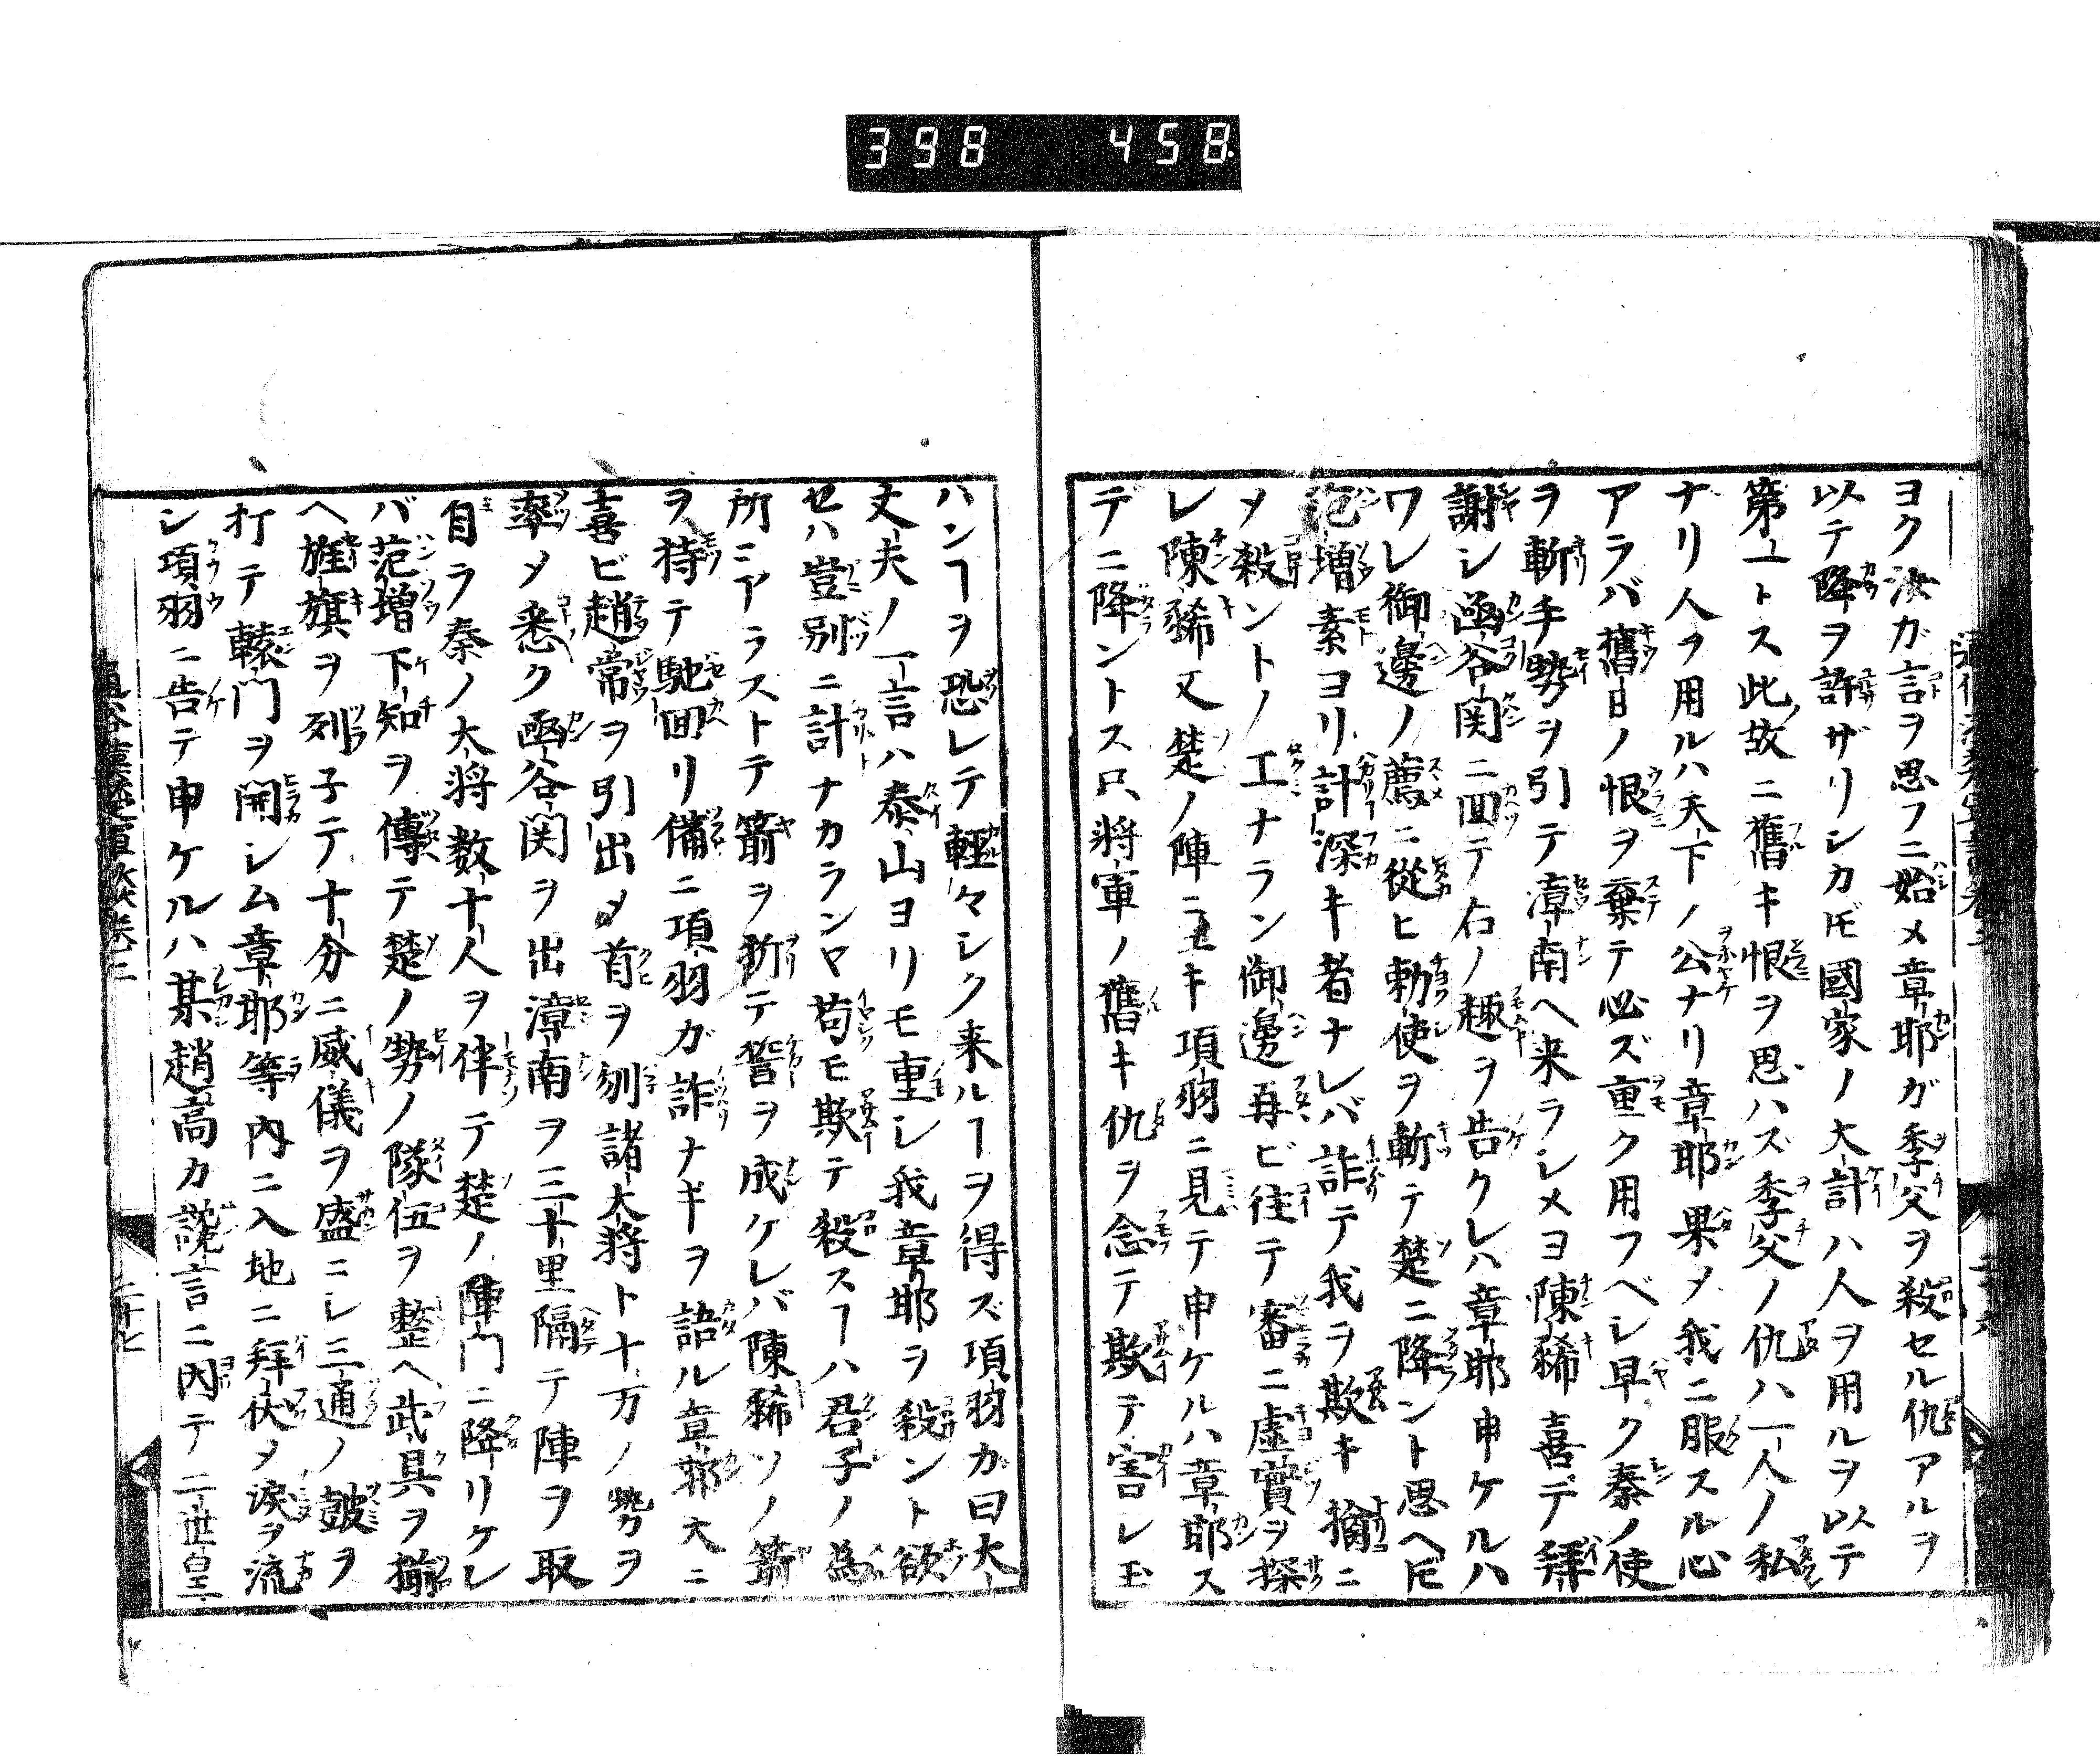 398 458
ヨク汝ガ言ヲ思フニ始メ章邯ガ季父ヲ殺セル仇アルヲ
以テ降ヲ許ザリシカ𪜈國家ノ大計ハ人ヲ用ルヲ以テ
第一トス此故ニ舊キ恨ヲ思ハズ季父ノ仇ハ一人ノ私
ナリ人ヲ用ルハ天下ノ公ナリ章邯果メ我ニ服スル心
アラバ舊日ノ恨ヲ棄テ必ズ重ク用フベシ早ク秦ノ使
ヲ斬手勢ヲ引テ漳南ヘ来ラシメヨ陳豨喜デ拜
謝シ函谷関ニ囬テ右ノ趣ヲ告クレハ章邯申ケルハ
ワレ御邊ノ薦ニ從ヒ勅使ヲ斬テ楚ニ降ント思ヘ𪜈
范増素ヨリ計深キ者ナレバ詐テ我ヲ欺キ擒ニ
メ殺ントノ工ナラン御邊再ビ往テ審ニ虚實ヲ探
レ陳豨又楚ノ陣ニ至キ項羽ニ見テ申ケルハ章邯ス
デニ降ントス只將軍ノ舊キ仇ヲ念テ欺テ害シ玉
ハンヿヲ恐レテ輕々シク来ルヿヲ得ズ項羽カ曰大
丈夫ノ一言ハ泰山ヨリモ重シ我章邯ヲ殺ント欲
セハ豈別ニ計ナカランヤ苟モ欺テ殺スヿハ君子ノ為
所ニアラストテ箭ヲ折テ誓ヲ成ケレバ陳豨ソノ箭
ヲ持テ馳囬リ備ニ項羽ガ詐ナキヲ語ル章邯大ニ
喜ビ趙常ヲ引出メ首ヲ刎諸大将ト十万ノ勢ヲ
率メ悉ク函谷関ヲ出漳南ヲ三十里隔テ陣ヲ取
自ラ秦ノ大将数十人ヲ伴テ楚ノ陣門ニ降リケレ
バ范増下知ヲ傳テ楚ノ勢ノ隊伍ヲ整ヘ武具ヲ揃
ヘ旌旗ヲ列子テ十分ニ威儀ヲ盛ニシ三通ノ皷ヲ
打テ轅門ヲ開シム章邯等内ニ入地ニ拜伏メ涙ヲ流
シ項羽ニ告テ申ケルハ某趙高カ讒言ニ因テ二世皇
二十七